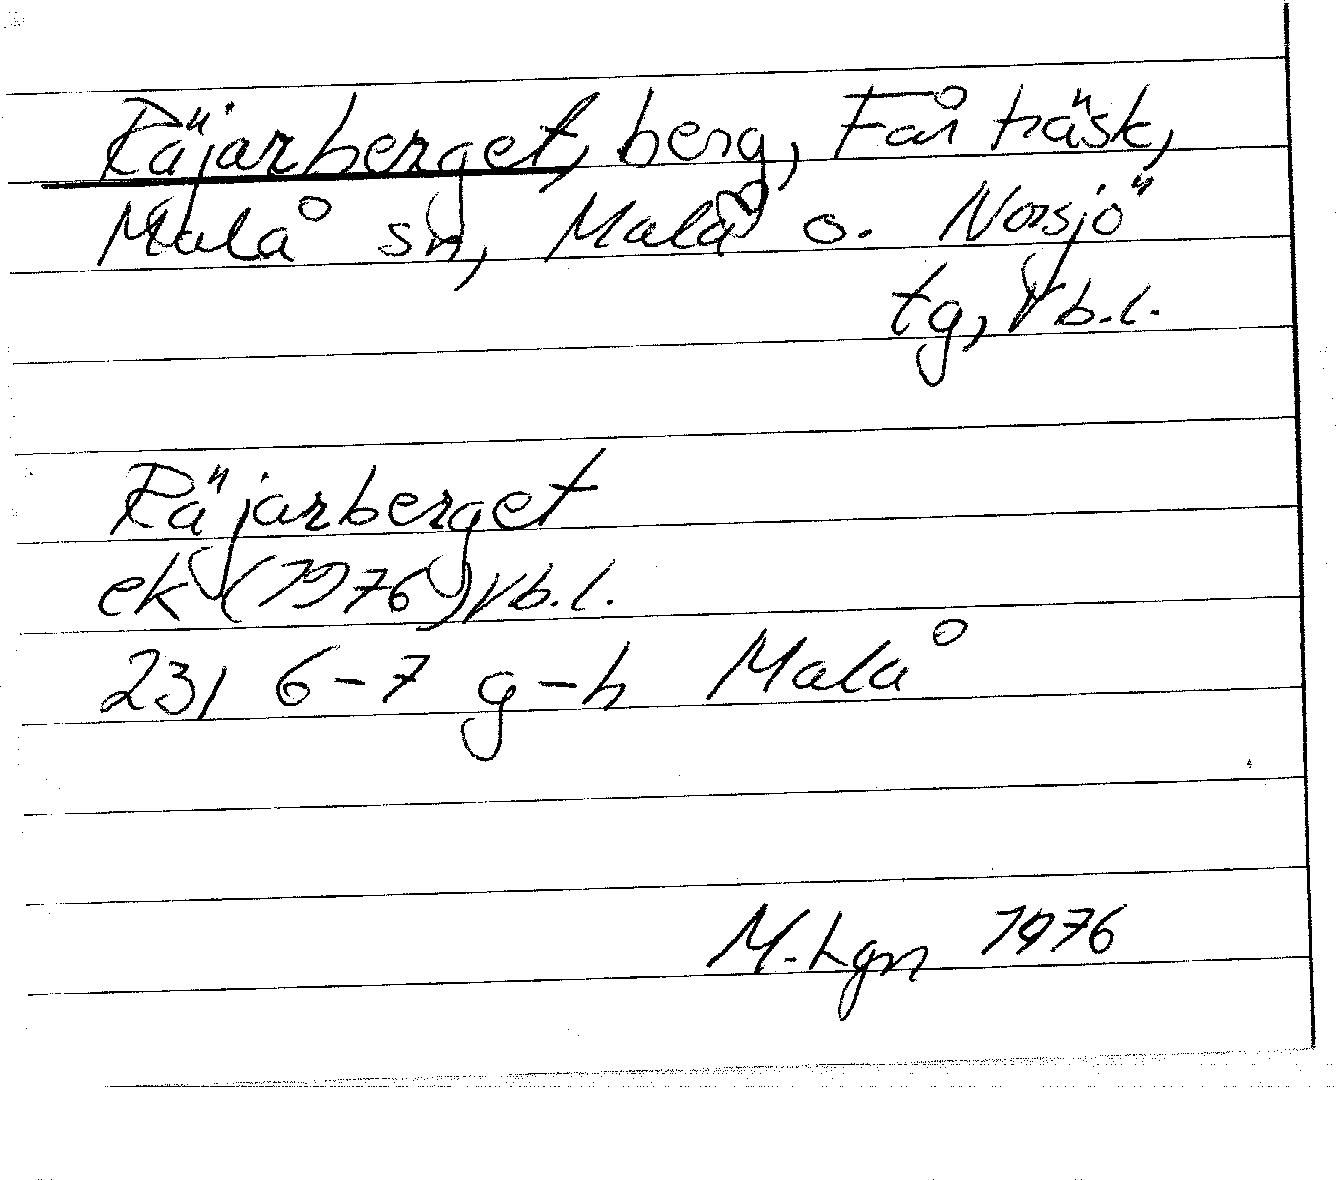 Räjarberget, berg, Fårträsk,
Malå sn, Malå o. Norsjö
tg, Vb.l.
Räjarberget
ek (1976) Vb.l.
23 I 6-7 g-h Malå
M. Lgn 1976